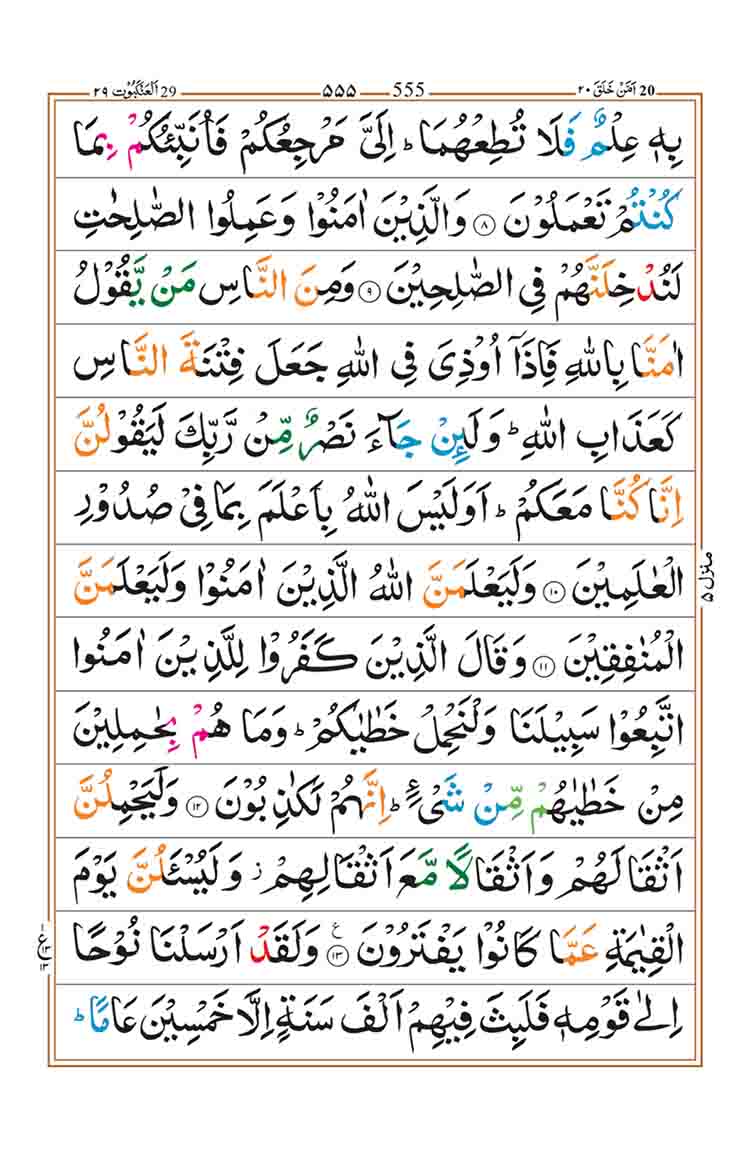 20 اَمَّنْ خَلَقَ ۲۰ 555 ۵۵۵ 29 اَلْعَنْكَبُوْت ۲۹
بِهٖ عِلْمٌ فَلَا تُطِعْهُمَا ؕ اِلَيَّ مَرْجِعُكُمْ فَاُنَبِّئُكُمْ بِمَا
كُنْتُمْ تَعْمَلُوْنَ ۸ وَالَّذِيْنَ اٰمَنُوْا وَعَمِلُوا الصّٰلِحٰتِ
لَنُدْخِلَنَّهُمْ فِي الصّٰلِحِيْنَ ۹ وَمِنَ النَّاسِ مَنْ يَّقُوْلُ
اٰمَنَّا بِاللّٰهِ فَاِذَاۤ اُوْذِيَ فِي اللّٰهِ جَعَلَ فِتْنَةَ النَّاسِ
كَعَذَابِ اللّٰهِ ؕ وَلَئِنْ جَآءَ نَصْرٌ مِّنْ رَّبِّكَ لَيَقُوْلُنَّ
اِنَّا كُنَّا مَعَكُمْ ؕ اَوَلَيْسَ اللّٰهُ بِاَعْلَمَ بِمَا فِيْ صُدُوْرِ
الْعٰلَمِيْنَ ۱۰ وَلَيَعْلَمَنَّ اللّٰهُ الَّذِيْنَ اٰمَنُوْا وَلَيَعْلَمَنَّ
الْمُنٰفِقِيْنَ ۱۱ وَقَالَ الَّذِيْنَ كَفَرُوْا لِلَّذِيْنَ اٰمَنُوا
اتَّبِعُوْا سَبِيْلَنَا وَلْنَحْمِلْ خَطٰيٰكُمْ ؕ وَمَا هُمْ بِحٰمِلِيْنَ
مِنْ خَطٰيٰهُمْ مِّنْ شَيْءٍ ؕ اِنَّهُمْ لَكٰذِبُوْنَ ۱۲ وَلَيَحْمِلُنَّ
اَثْقَالَهُمْ وَاَثْقَالًا مَّعَ اَثْقَالِهِمْ ز وَلَيُسْـَٔلُنَّ يَوْمَ
الْقِيٰمَةِ عَمَّا كَانُوْا يَفْتَرُوْنَ ۱۳ ع وَلَقَدْ اَرْسَلْنَا نُوْحًا
اِلٰى قَوْمِهٖ فَلَبِثَ فِيْهِمْ اَلْفَ سَنَةٍ اِلَّا خَمْسِيْنَ عَامًا ؕ
منزل ۵
ع ۱ ۱۳ ۱۳